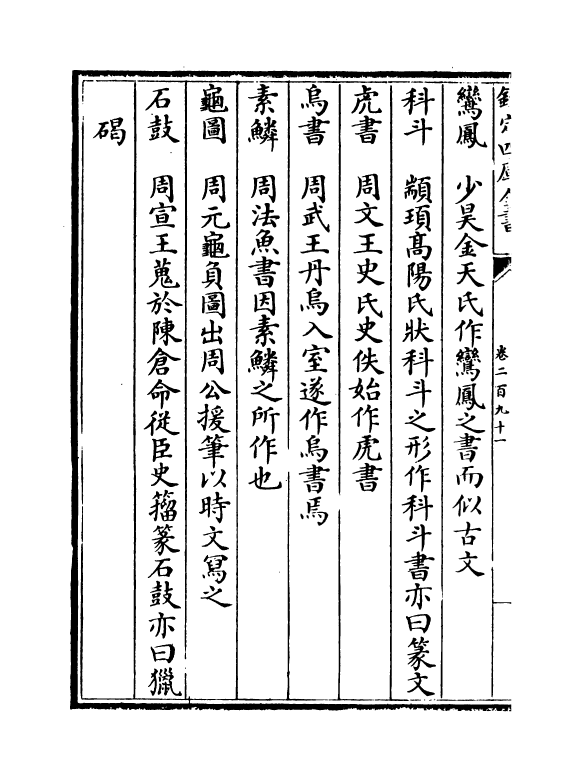 欽定四庫全書
卷二百九十一
鸞鳳　少昊金天氏作鸞鳳之書而似古文
科斗　顓頊髙陽氏狀科斗之形作科斗書亦曰篆文
虎書　周文王史氏史佚始作虎書
烏書　周武王丹烏入室遂作烏書焉
素鱗　周法魚書因素鱗之所作也
龜圖　周元龜負圖出周公援筆以時文冩之
石鼓　周宣王蒐於陳倉命從臣史籀篆石鼓亦曰獵
碣